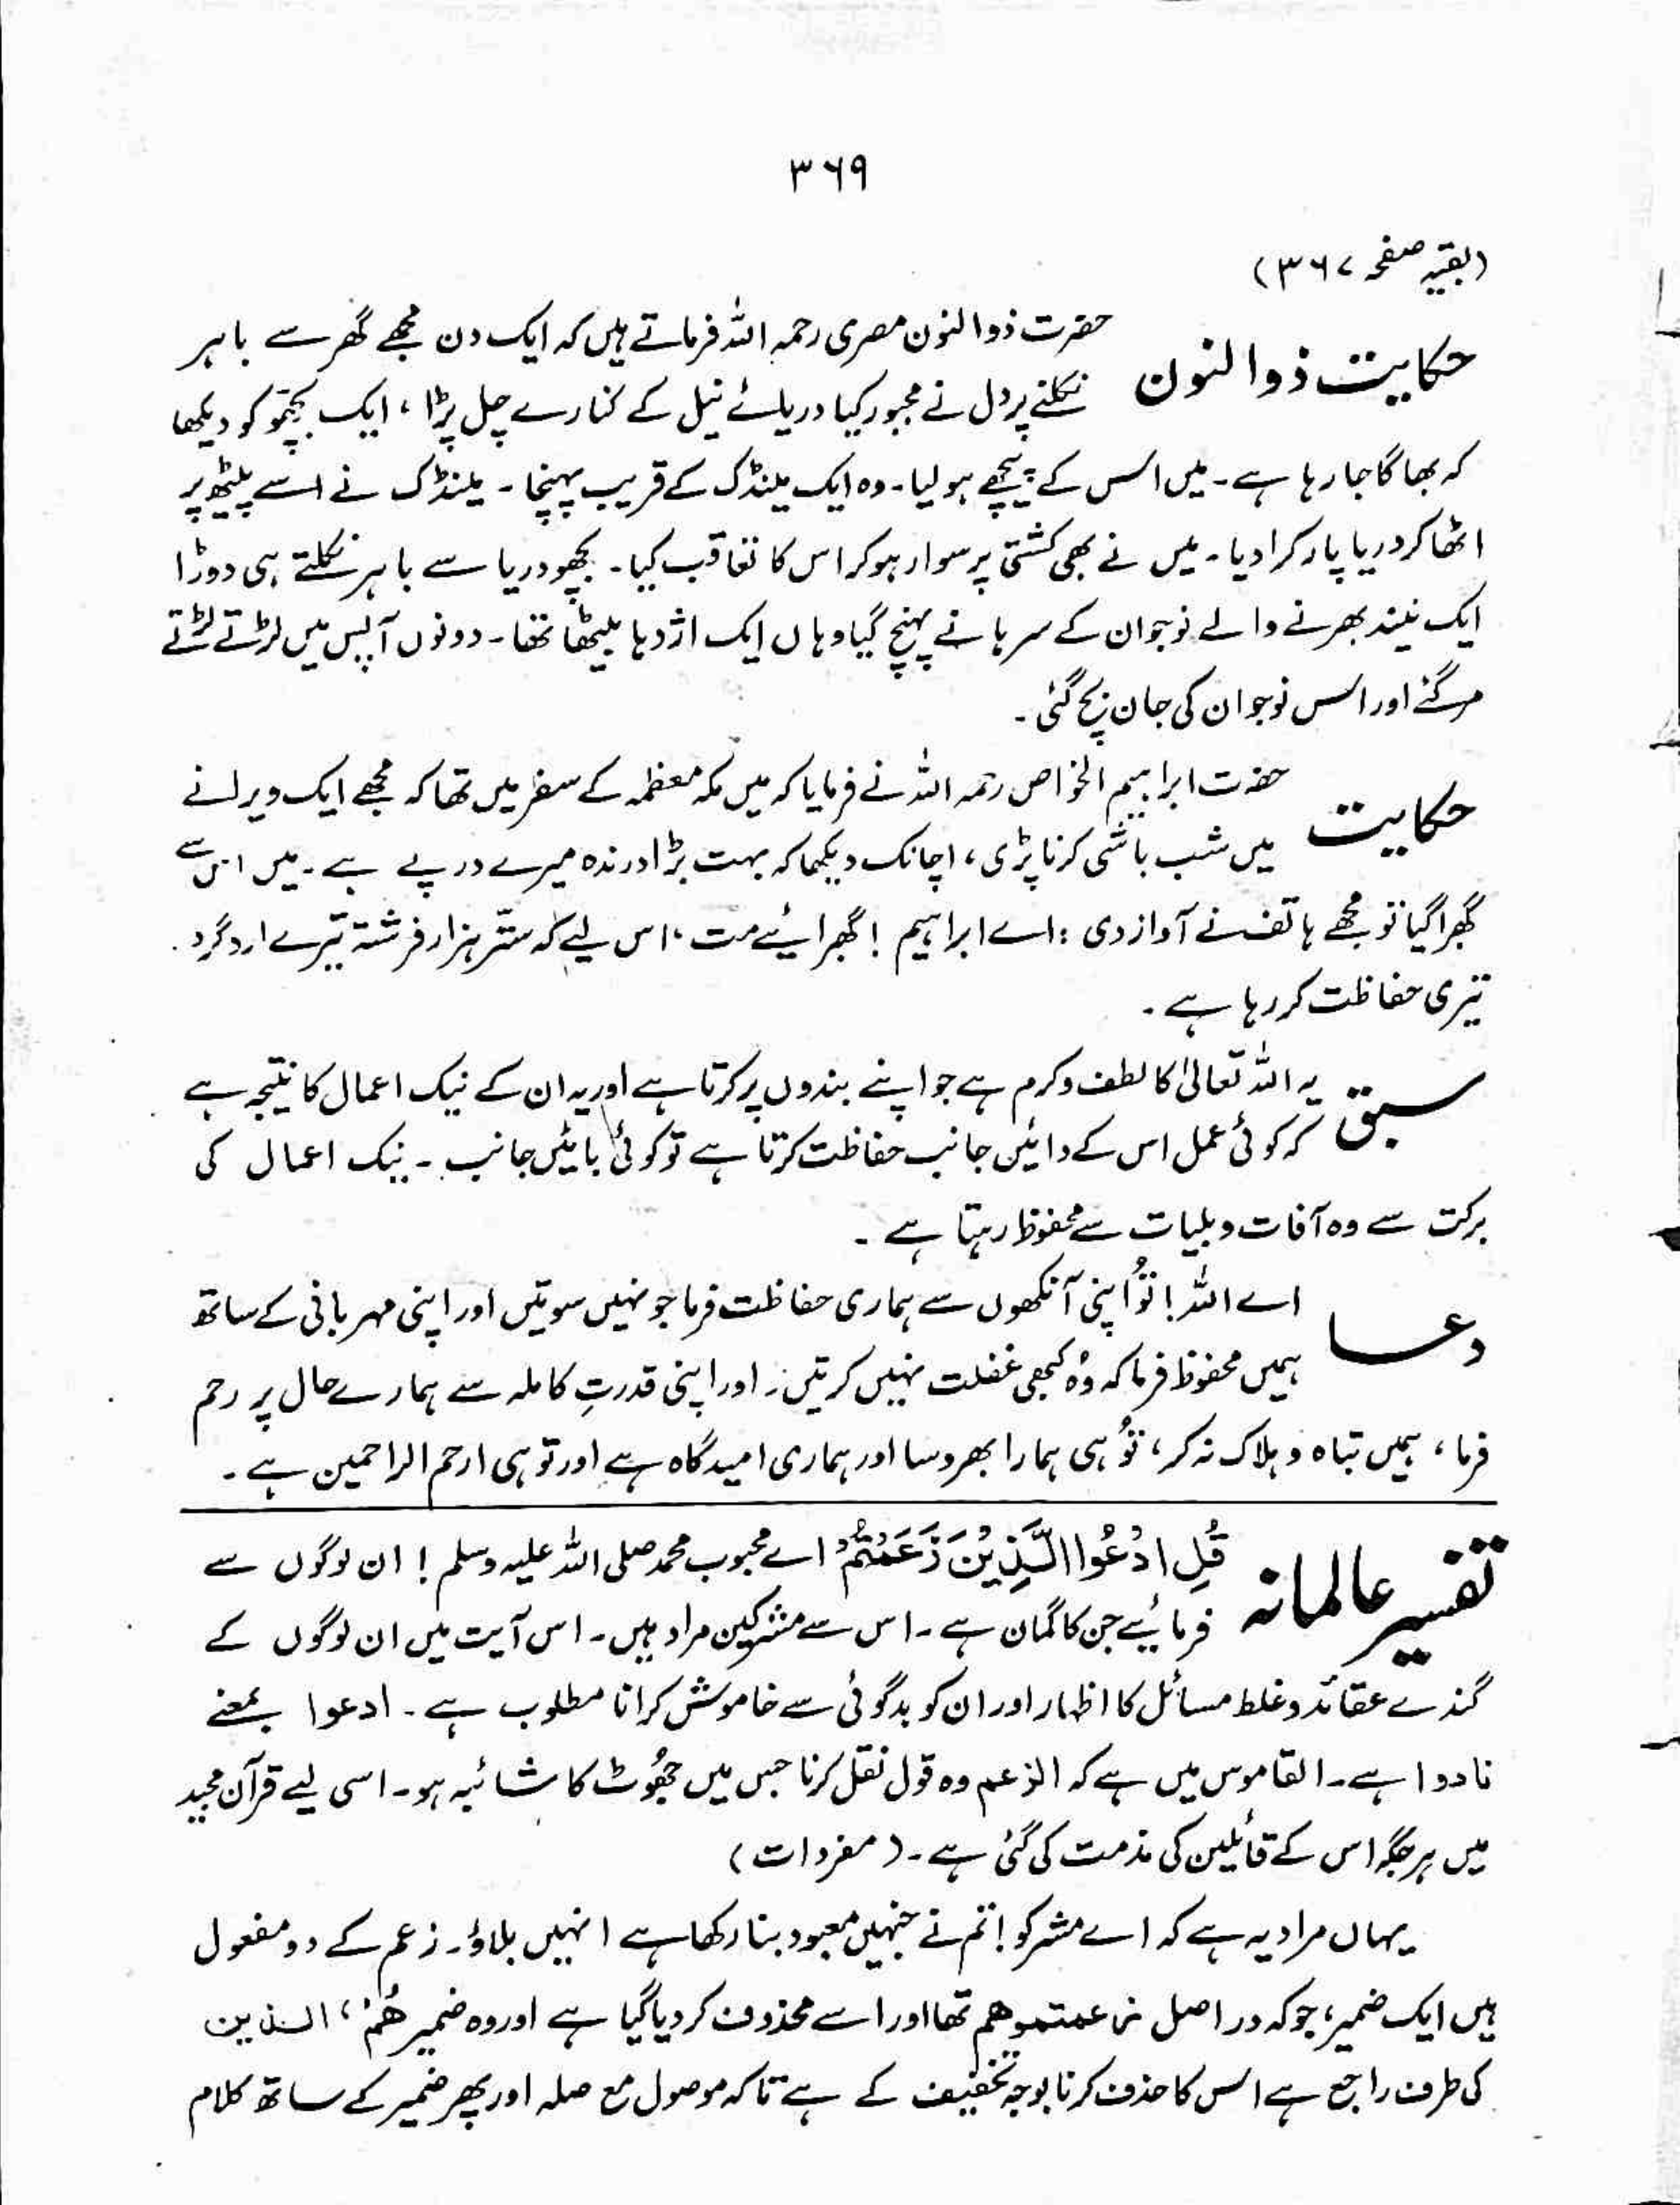 ۳۶۹
(بقیہ صفحہ ۳۶۷)
حکایت ذوالنون
حضرت ذوالنون مصری رحمہ اللہ فرماتے ہیں کہ ایک دن مجھے گھر سے باہر
نکلنے پر دل نے مجبور کیا دریائے نیل کے کنارے چل پڑا ، ایک بچھو کو دیکھا
کہ بھاگا جا رہا ہے ۔ میں اس کے پیچھے ہو لیا ۔ وہ ایک مینڈک کے قریب پہنچا ۔ مینڈک نے اسے پیٹھ پر
اٹھا کر دریا پار کرا دیا ۔ میں نے بھی کشتی پر سوار ہو کر اس کا تعاقب کیا ۔ بچھو دریا سے باہر نکلتے ہی دوڑا
ایک نیند بھرنے والے نوجوان کے سرہانے پہنچ گیا وہاں ایک اژدہا بیٹھا تھا ۔ دونوں آپس میں لڑتے لڑتے
مر گئے اور اس نوجوان کی جان بچ گئی ۔
حکایت
حضرت ابراہیم الخواص رحمہ اللہ نے فرمایا کہ میں مکہ معظمہ کے سفر میں تھا کہ مجھے ایک ویرانے
میں شب باشی کرنا پڑی ، اچانک دیکھا کہ بہت بڑا درندہ میرے درپے ہے ۔ میں اس سے
گھبرا گیا تو مجھے ہاتف نے آواز دی : اے ابراہیم ! گھبرائیے مت ، اس لیے کہ ستّر ہزار فرشتہ تیرے ارد گرد
تیری حفاظت کر رہا ہے ۔
سبق
یہ اللہ تعالیٰ کا لطف و کرم ہے جو اپنے بندوں پر کرتا ہے اور یہ ان کے نیک اعمال کا نتیجہ ہے
کہ کوئی عمل اس کے دائیں جانب حفاظت کرتا ہے تو کوئی بائیں جانب ۔ نیک اعمال کی
برکت سے وہ آفات و بلیات سے محفوظ رہتا ہے ۔
دعا
اے اللہ ! تُو اپنی آنکھوں سے ہماری حفاظت فرما جو نہیں سوتیں اور اپنی مہربانی کے ساتھ
ہمیں محفوظ فرما کہ وُہ کبھی غفلت نہیں کرتیں ۔ اور اپنی قدرتِ کاملہ سے ہمارے حال پر رحم
فرما ، ہمیں تباہ و ہلاک نہ کر ، تُو ہی ہمارا بھروسا اور ہماری امید گاہ ہے اور تو ہی ارحم الراحمین ہے ۔
تفسیر عالمانہ
قُلِ ادْعُوا الَّذِیْنَ زَعَمْتُمْ اے محبوب محمد صلی اللہ علیہ وسلم ! ان لوگوں سے
فرمائیے جن کا گمان ہے ۔ اس سے مشرکین مراد ہیں ۔ اس آیت میں ان لوگوں کے
گندے عقائد و غلط مسائل کا اظہار اور ان کو بدگوئی سے خاموش کرانا مطلوب ہے ۔ ادعوا بمعنے
نادوا ہے ۔ القاموس میں ہے کہ الزعم وہ قول نقل کرنا جس میں جھُوٹ کا شائبہ ہو ۔ اسی لیے قرآن مجید
میں ہر جگہ اس کے قائلین کی مذمت کی گئی ہے ۔ (مفردات)
یہاں مراد یہ ہے کہ اے مشرکو ! تم نے جنہیں معبود بنا رکھا ہے انہیں بلاؤ ۔ زعم کے دو مفعول
ہیں ایک ضمیر ، جو کہ در اصل زعمتموھم تھا اور اسے محذوف کر دیا گیا ہے اور وہ ضمیر ھُمْ ، الذین
کی طرف راجع ہے اس کا حذف کرنا بوجہ تخفیف کے ہے تاکہ موصول مع صلہ اور پھر ضمیر کے ساتھ کلام